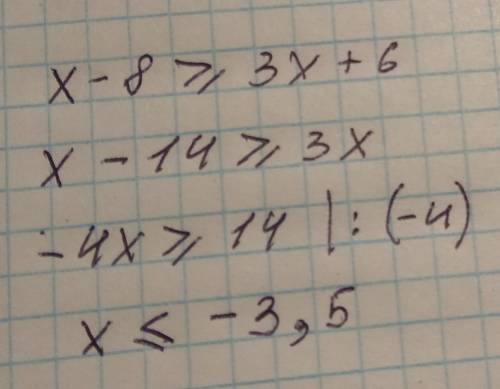 x - 8 ⩾ 3x + 6
x - 14 ⩾ 3x
-4x ⩾ 14 | : (-4)
x ≤ -3,5